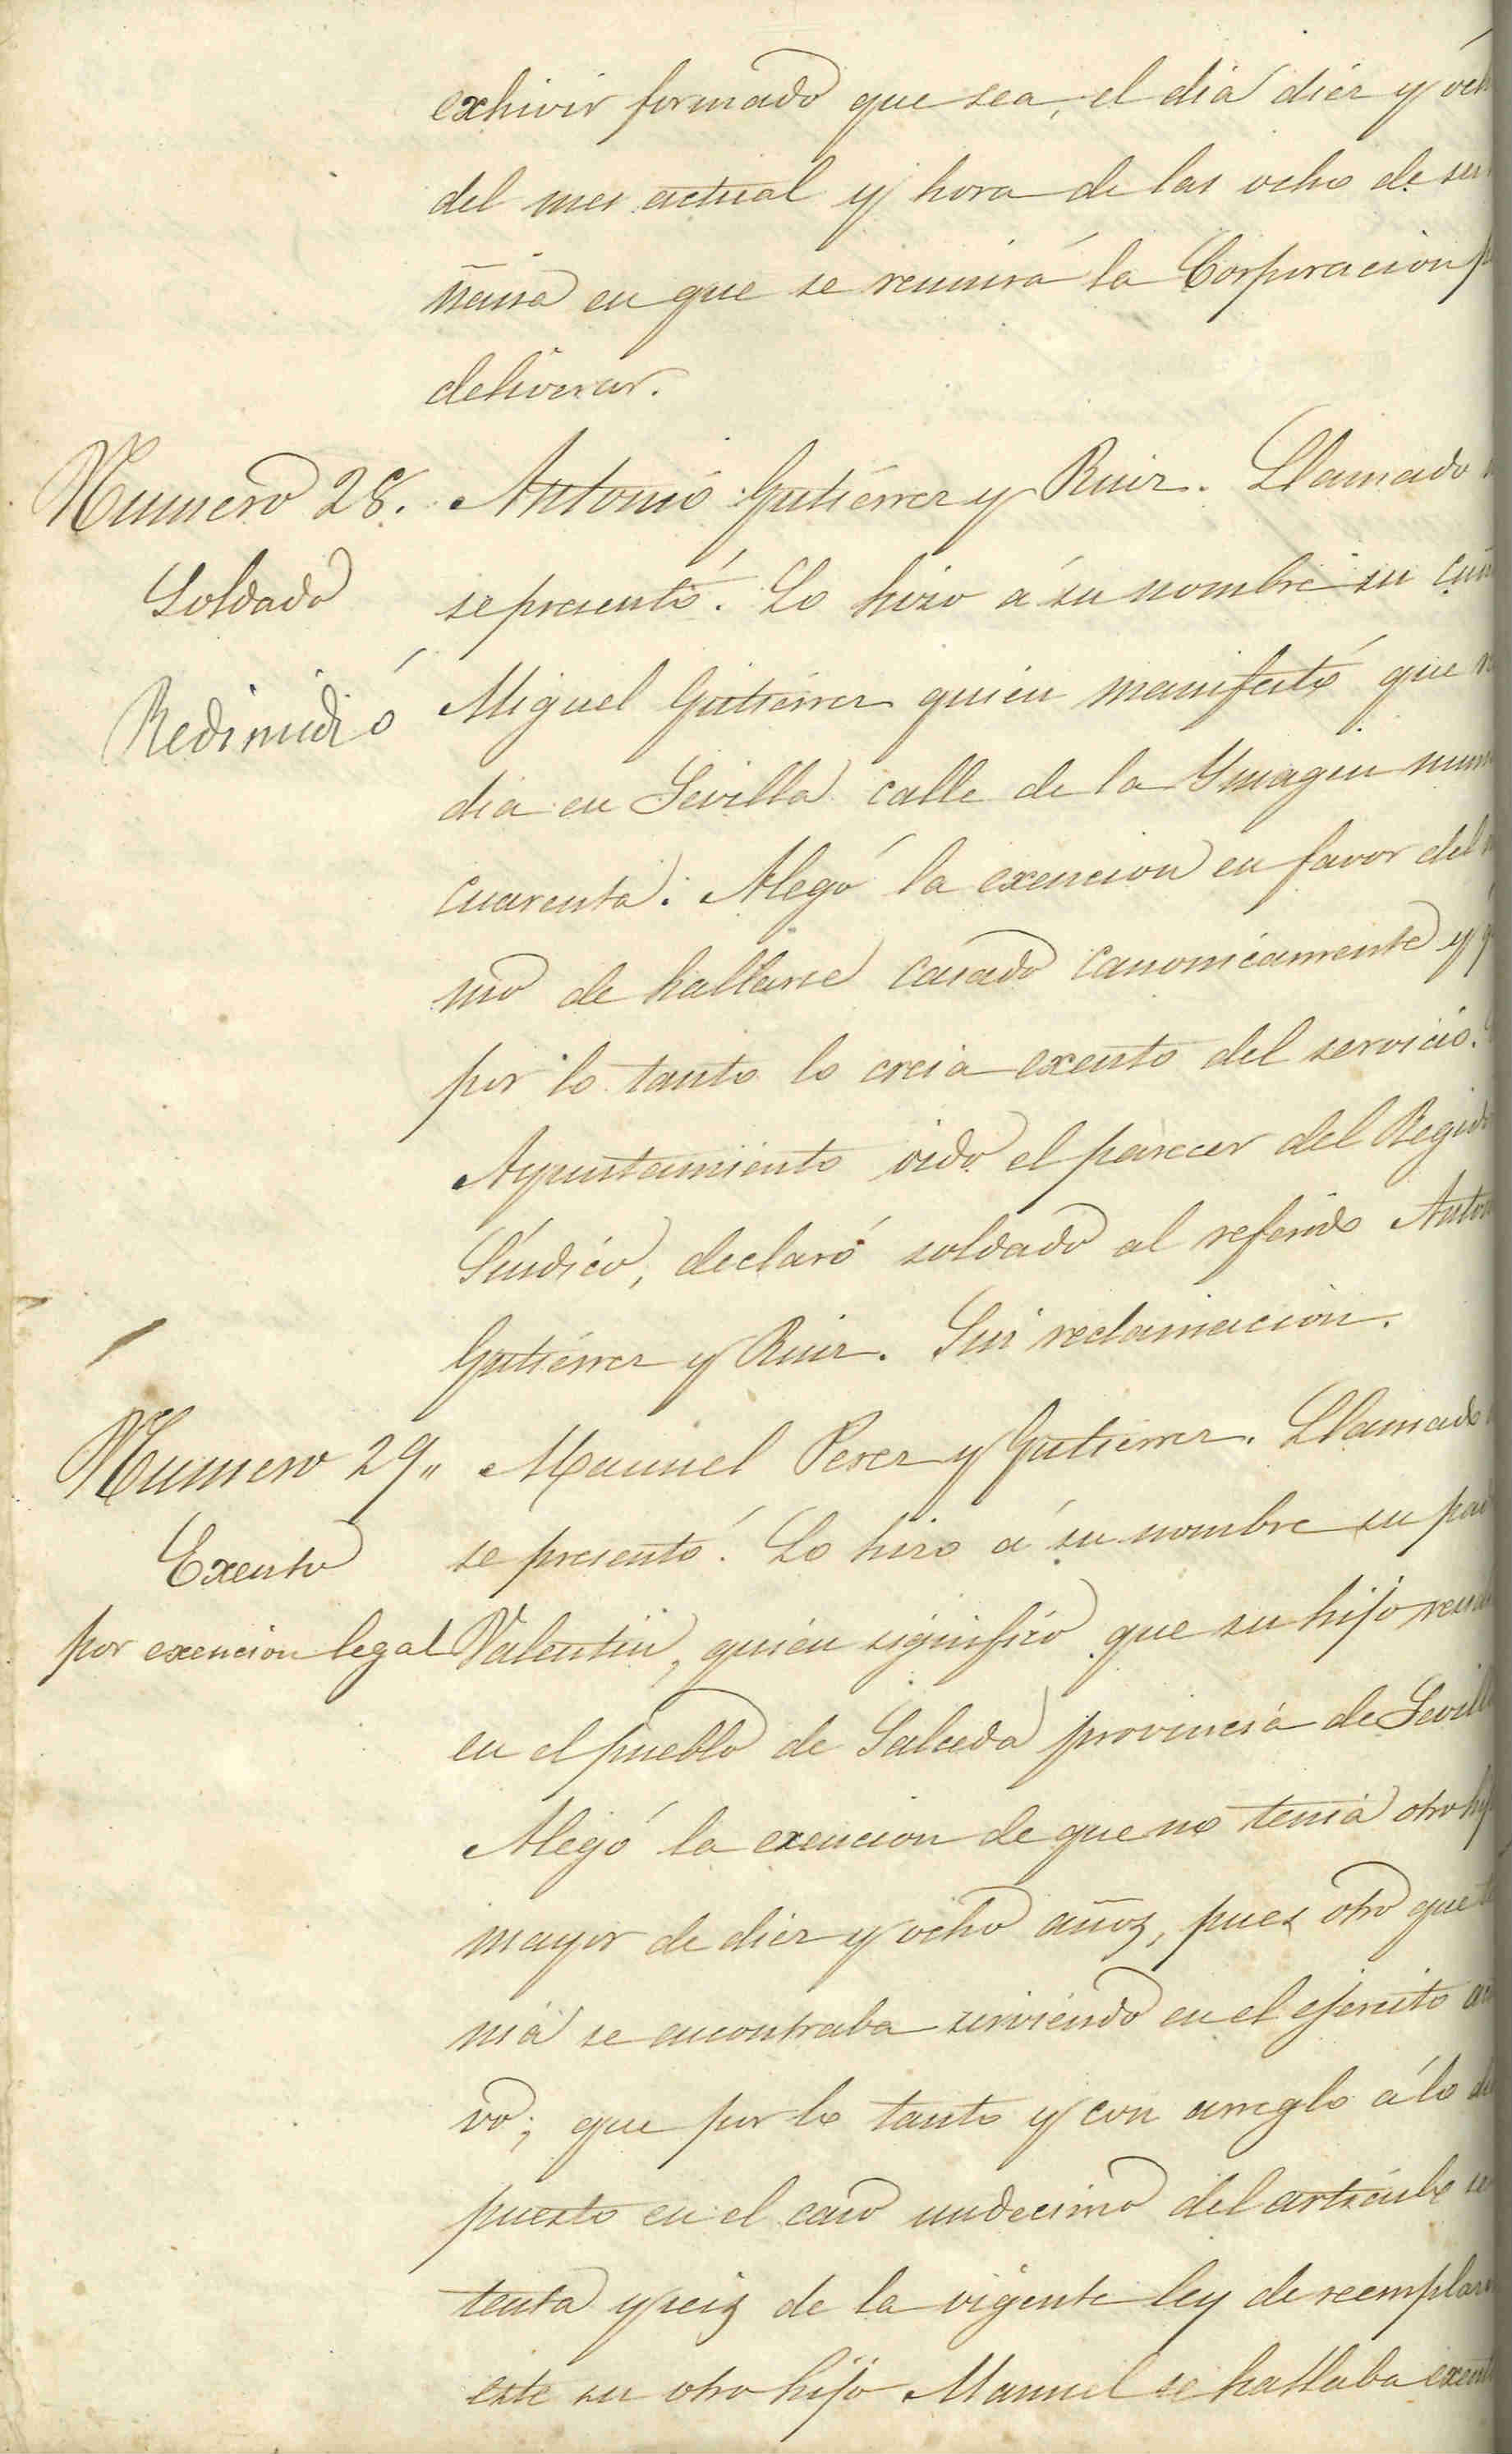 exhivir formado que sea, el dia diez y och
del mes actual y hora de las ocho de su
ñana en que se reunirá la Corporacion p
deliverar.
Numero 28. Antonio Gutierrez y Ruiz. Llamado
Soldado se presentó. Lo hizo á su nombre su cuñ
Redimidió Miguel Gutierrez quien manifestó que r
dia en Sevilla calle de la Ymagen num
cuarenta. Alegó la exencion en favor del
mo de hallarse casado canonicamente y q
por lo tanto lo creia exento del servicio.
Ayuntamiento oido el parecer del Regid
Síndico, declaró soldado al referido Anton
Gutierrez y Ruiz. Sin reclamacion.
Numero 29,, Manuel Perez y Gutierrez. Llamado
Exento se presentó. Lo hizo á su nombre su pad
por exencion legal Valentin, quien significó que su hijo resid
en el pueblo de Salceda provincia de Sevill
Alegó la exencion de que no tenia otro hij
mayor de diez y ocho años, pues otro que te
nia se encontraba sirviendo en el ejercito ac
vo; que por lo tanto y con arreglo á lo dis
puesto en el caso undecimo del articulo se
tenta y seis de la vigente ley de reemplazo
este su otro hijo Manuel se hallaba exent